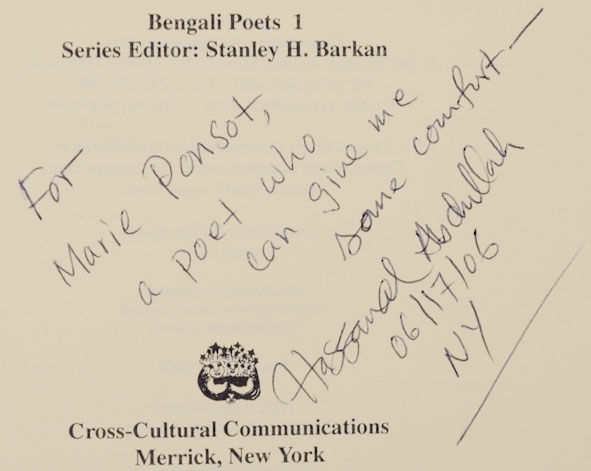 Bengali Poets 1
Series Editor: Stanley H. Barkan
For
Marie Ponsot,
a poet who
can give me
some comfort—
Hassanal Abdullah
06/17/06
NY
Cross-Cultural Communications
Merrick, New York